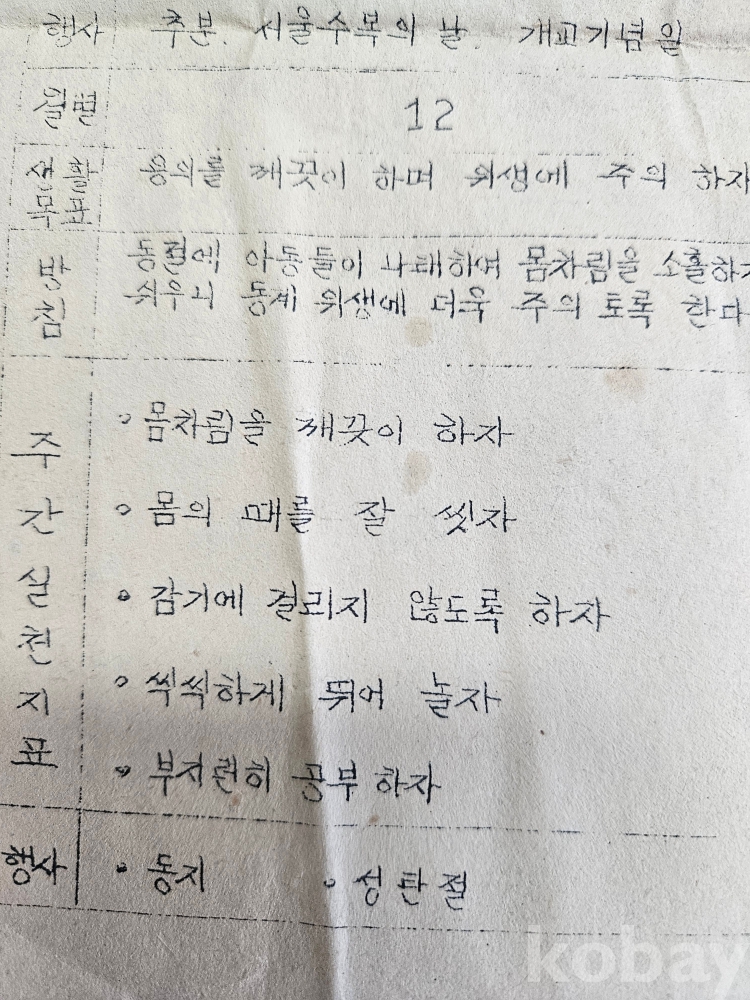 행사 추분. 서울수복의 날. 개교기념일
월별 12
생활목표 용의를 깨끗이 하며 위생에 주의 하자
방침 동절에 아동들이 나태하여 몸차림을 소홀하
쉬우니 동계 위생에 더욱 주의 토록 한다
주간실천지표
◦ 몸차림을 깨끗이 하자
◦ 몸의 때를 잘 씻자
◦ 감기에 걸리지 않도록 하자
◦ 씩씩하게 뛰어 놀자
◦ 부지런히 공부 하자
행사 • 동지 ◦ 성탄절
kobay